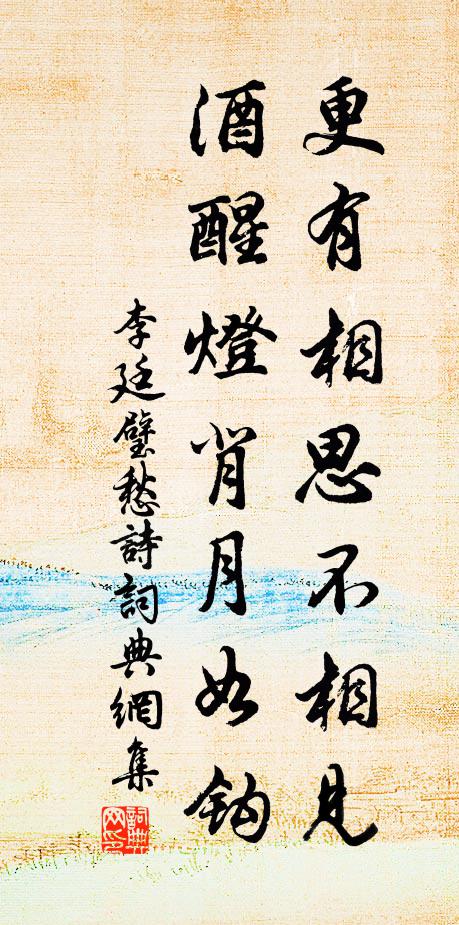 更有相思不相見
酒醒燈背月如鈎
李廷璧愁詩詞典網集
詞典網印